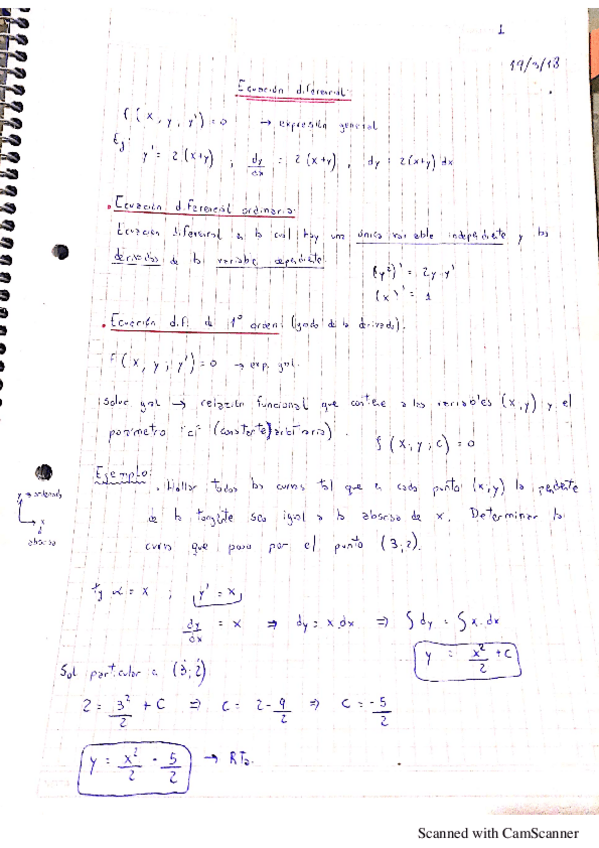 1
19/3/18
Ecuación diferencial:
f(x, y, y') = 0 → expresión general
Ej:
y' = 2(x+y) ; dy/dx = 2(x+y) , dy = 2(x+y) dx
. Ecuación diferencial ordinaria:
Ecuación diferencial en la cual hay una única variable independiente y las
derivadas de la variable dependiente.
(y²)' = 2y.y'
(x)' = 1
. Ecuación dif. de 1° orden: (grado de la derivada).
F(x, y, y') = 0 → exp. gral.
soluc gral → relación funcional que contiene a las variables (x,y) y el
parámetro "c" (constante arbitraria).
f(x, y, c) = 0
Ejemplo:
. Hallar todas las curvas tal que en cada punto (x,y) la pendiente
y → ordenada
x
abscisa
de la tangente sea igual a la abscisa de x. Determinar la
curva que pasa por el punto (3;2).
tg α = x ; y' = x
dy/dx = x ⇒ dy = x.dx ⇒ ∫dy = ∫x.dx
y = x²/2 + C
Sol particular a (3;2)
2 = 3²/2 + C ⇒ C = 2 - 9/2 ⇒ C = -5/2
y = x²/2 - 5/2 → RTa.
Scanned with CamScanner